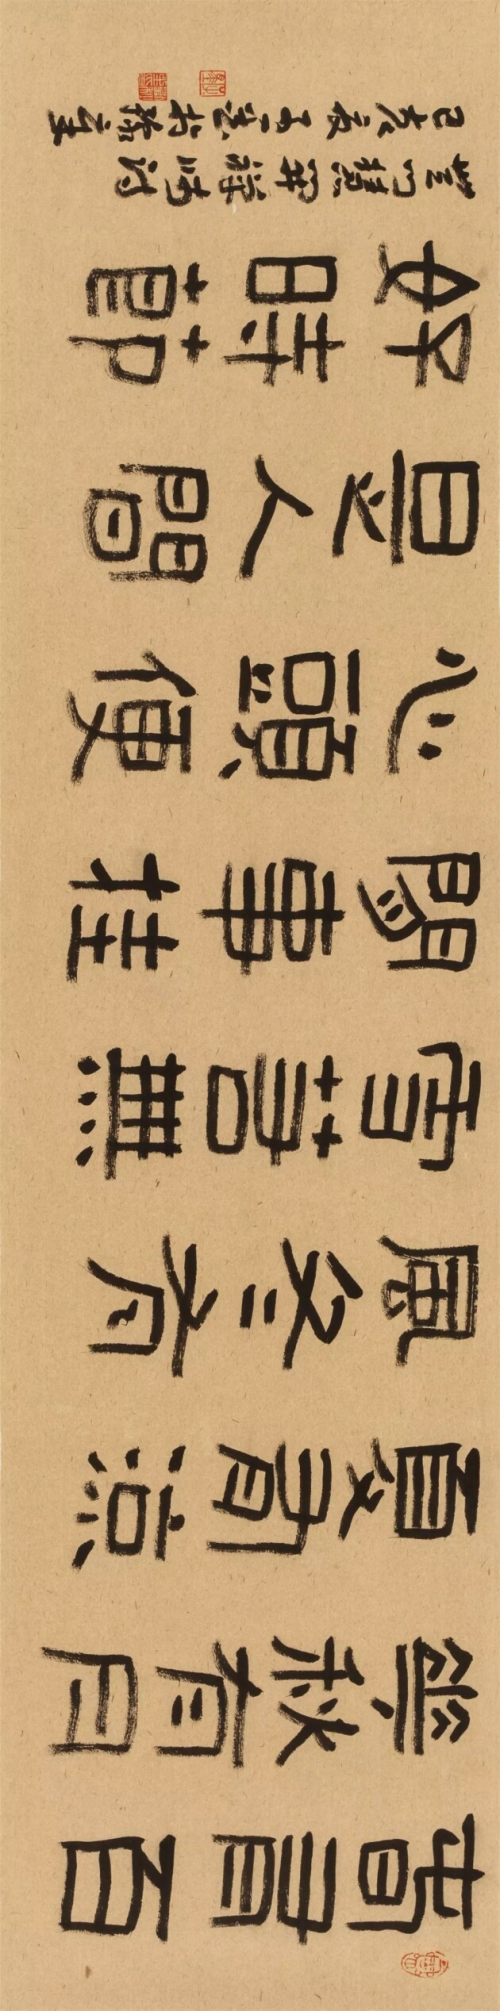 春有百
花秋有月
夏有涼
風冬有
雪若無
閒事挂
心頭便
是人間
好時節
無門慧開禪師詩
己亥夏